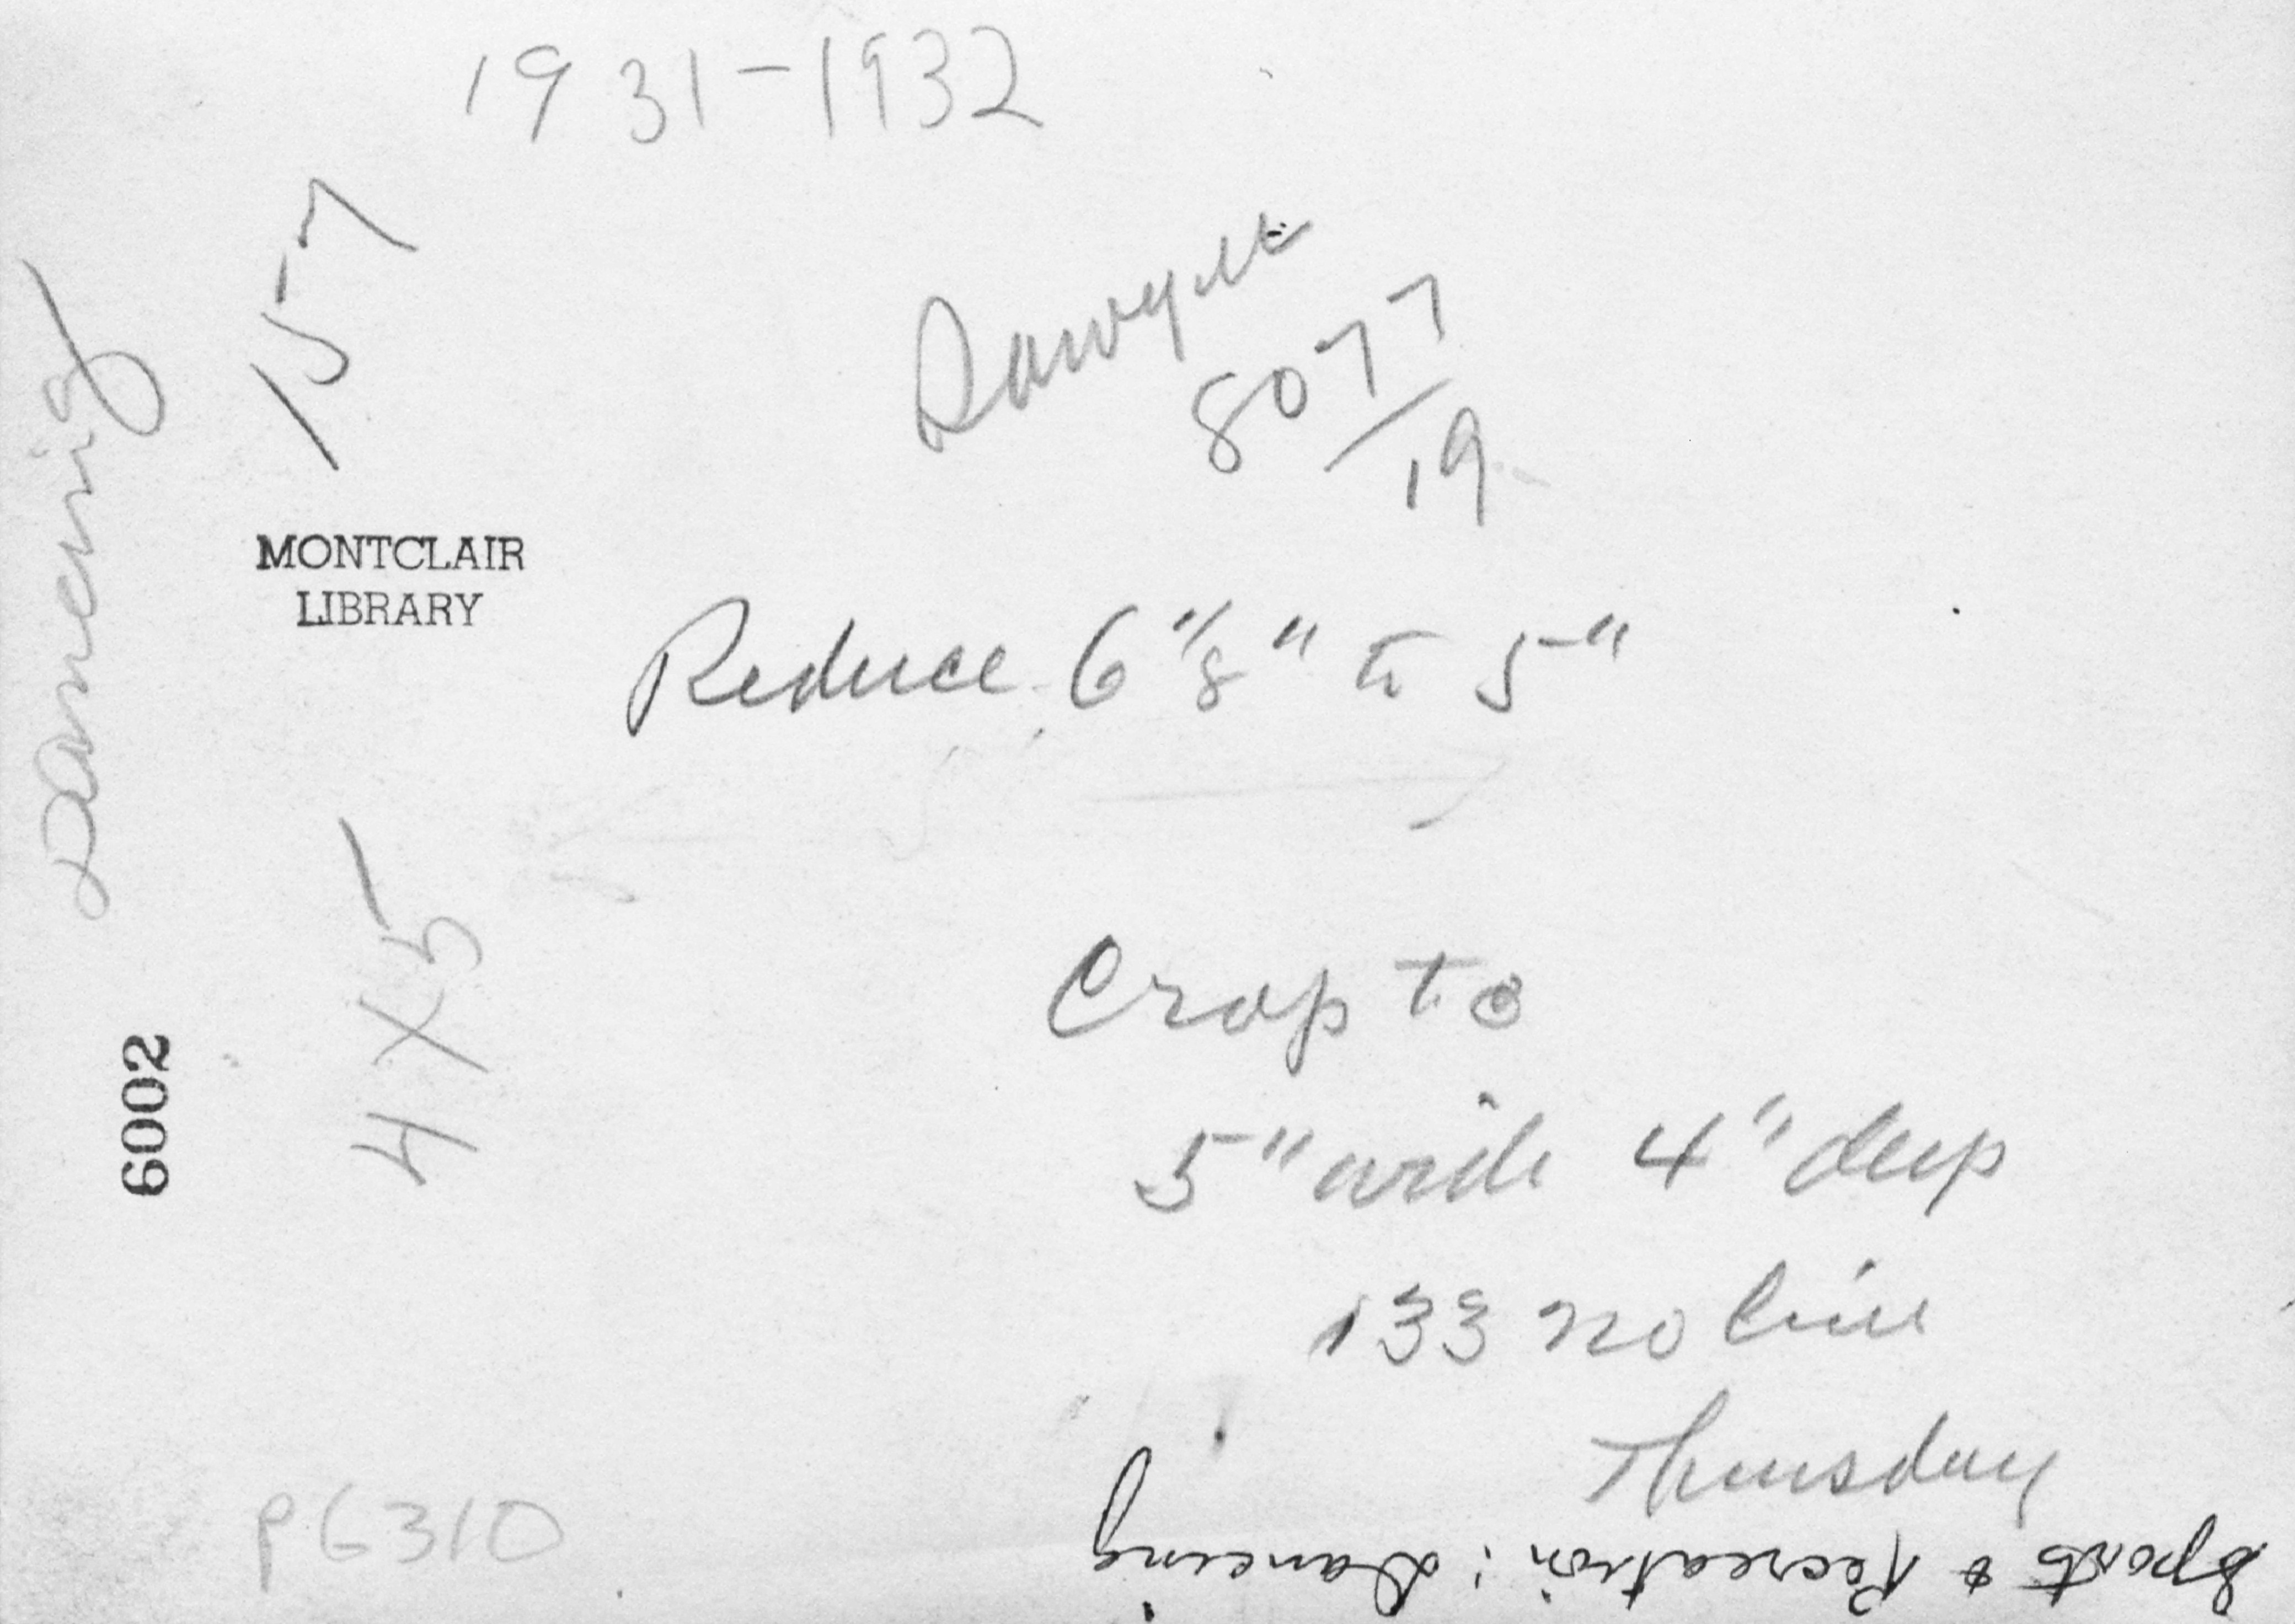 1931-1932
157
8077/19
Dancing
MONTCLAIR
LIBRARY
Reduce 6 1/8" to 5"
4X5
Crop to
5" wide 4" deep
6002
133 no line
Thursday
P6310
Sports & Recreation: Dancing